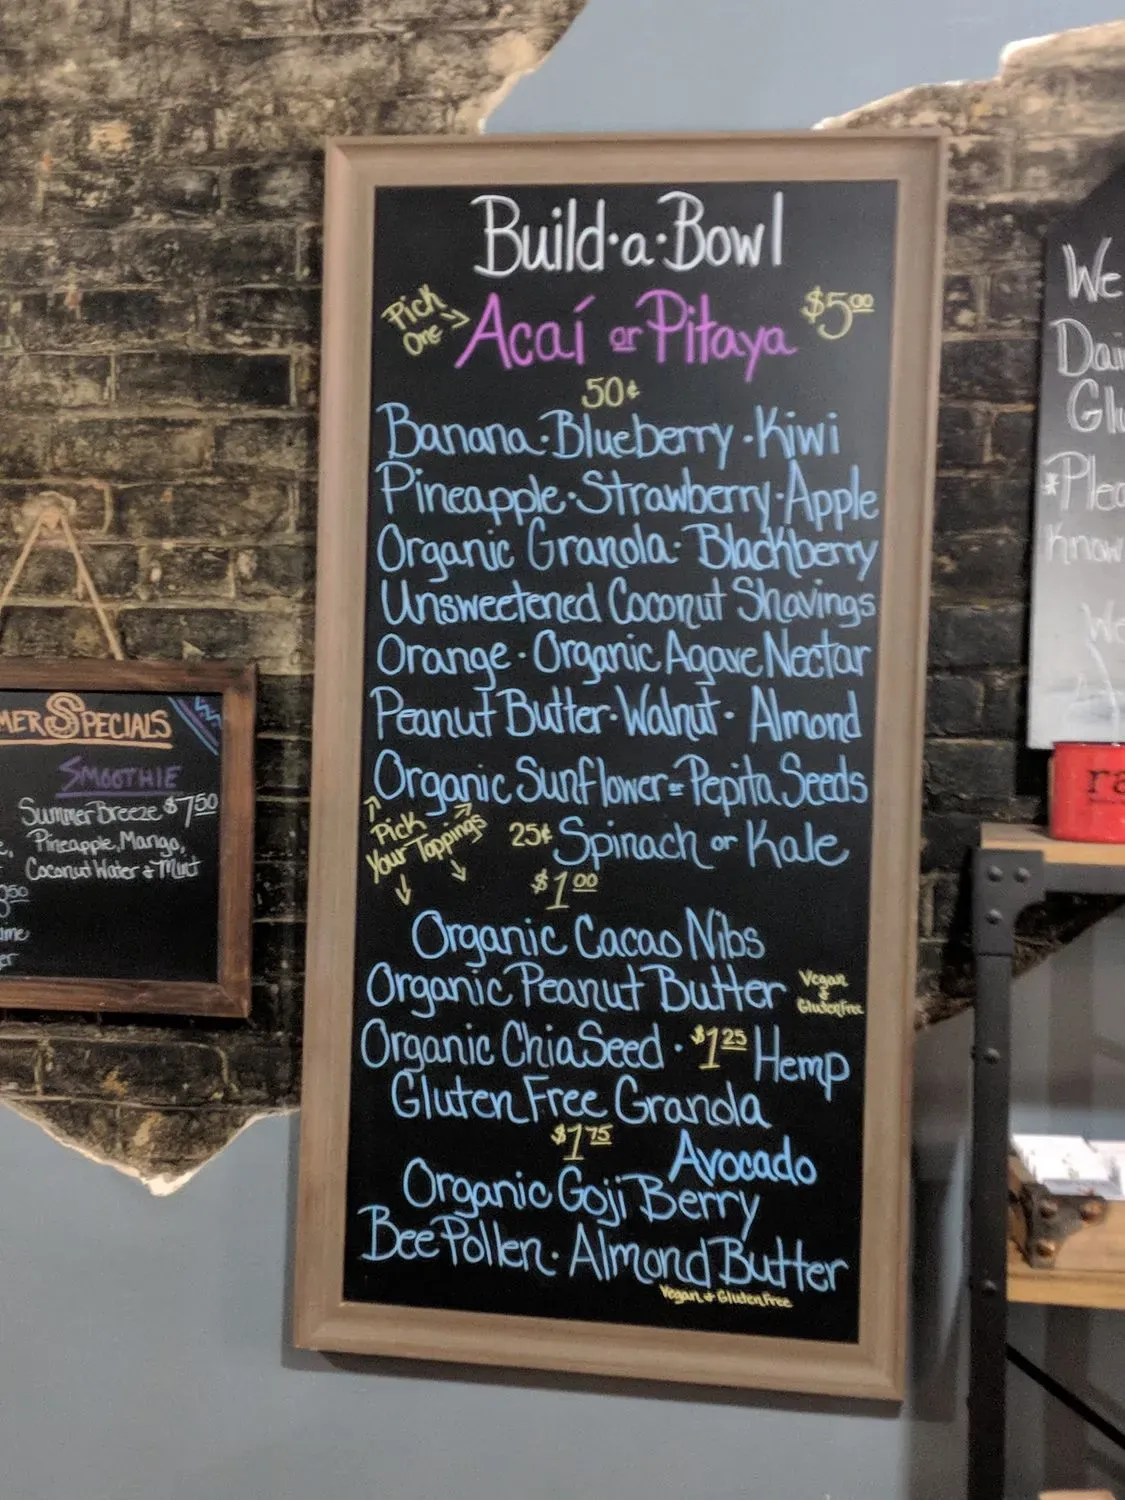 Build·a·Bowl
Pick One → Acaí or Pitaya $5.00
50¢
Banana·Blueberry·Kiwi
Pineapple·Strawberry·Apple
Organic Granola·Blackberry
Unsweetened Coconut Shavings
Orange·Organic Agave Nectar
Peanut Butter·Walnut·Almond
Organic Sunflower or Pepita Seeds
Pick Your Toppings
25¢ Spinach or Kale
$1.00
Organic Cacao Nibs
Organic Peanut Butter Vegan & Gluten Free
Organic Chia Seed·$1.25 Hemp
Gluten Free Granola
$1.75 Avocado
Organic Goji Berry
Bee Pollen·Almond Butter
Vegan & Gluten Free
Specials
Smoothie
Summer Breeze $7.50
Pineapple, Mango,
Coconut Water & Mint
We